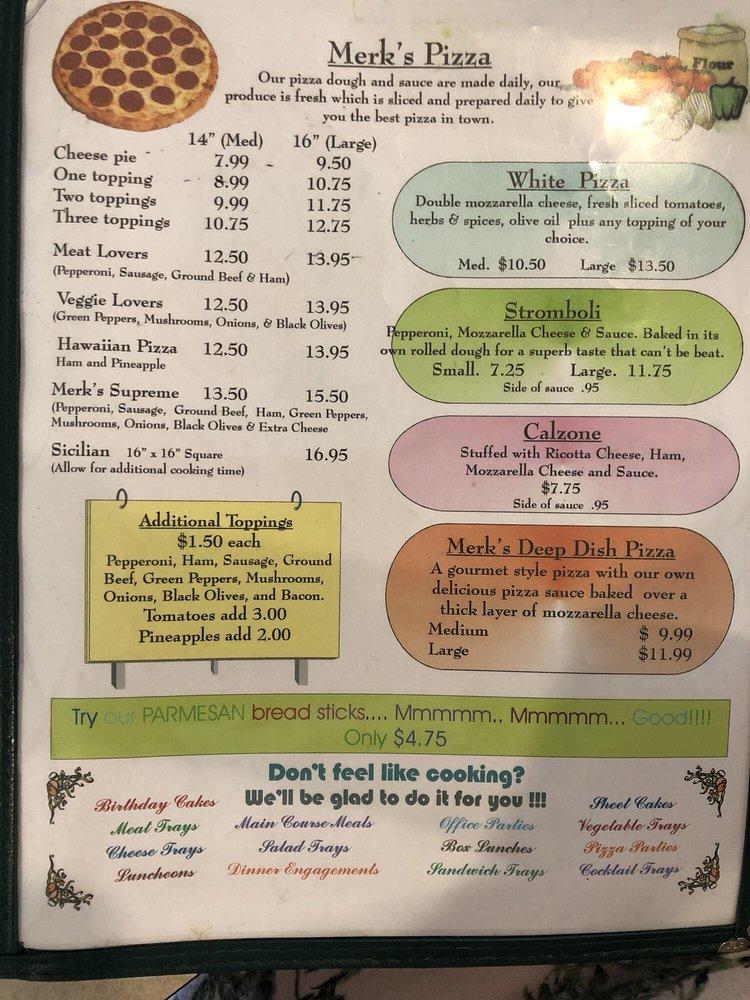 Merk's Pizza
Our pizza dough and sauce are made daily, our
produce is fresh which is sliced and prepared daily to give
you the best pizza in town.
Flour
14" (Med) 16" (Large)
Cheese pie 7.99 9.50
One topping 8.99 10.75
Two toppings 9.99 11.75
Three toppings 10.75 12.75
Meat Lovers 12.50 13.95
(Pepperoni, Sausage, Ground Beef & Ham)
Veggie Lovers 12.50 13.95
(Green Peppers, Mushrooms, Onions, & Black Olives)
Hawaiian Pizza 12.50 13.95
Ham and Pineapple
Merk's Supreme 13.50 15.50
(Pepperoni, Sausage, Ground Beef, Ham, Green Peppers,
Mushrooms, Onions, Black Olives & Extra Cheese
Sicilian 16" x 16" Square 16.95
(Allow for additional cooking time)
Additional Toppings
$1.50 each
Pepperoni, Ham, Sausage, Ground
Beef, Green Peppers, Mushrooms,
Onions, Black Olives, and Bacon.
Tomatoes add 3.00
Pineapples add 2.00
White Pizza
Double mozzarella cheese, fresh sliced tomatoes,
herbs & spices, olive oil plus any topping of your
choice.
Med. $10.50 Large $13.50
Stromboli
Pepperoni, Mozzarella Cheese & Sauce. Baked in its
own rolled dough for a superb taste that can't be beat.
Small. 7.25 Large. 11.75
Side of sauce .95
Calzone
Stuffed with Ricotta Cheese, Ham,
Mozzarella Cheese and Sauce.
$7.75
Side of sauce .95
Merk's Deep Dish Pizza
A gourmet style pizza with our own
delicious pizza sauce baked over a
thick layer of mozzarella cheese.
Medium $ 9.99
Large $11.99
Try our PARMESAN bread sticks.... Mmmmm.. Mmmmm... Good!!!!
Only $4.75
Don't feel like cooking?
We'll be glad to do it for you !!!
Birthday Cakes Sheet Cakes
Meat Trays Main Course Meals Office Parties Vegetable Trays
Cheese Trays Salad Trays Box Lunches Pizza Parties
Luncheons Dinner Engagements Sandwich Trays Cocktail Trays